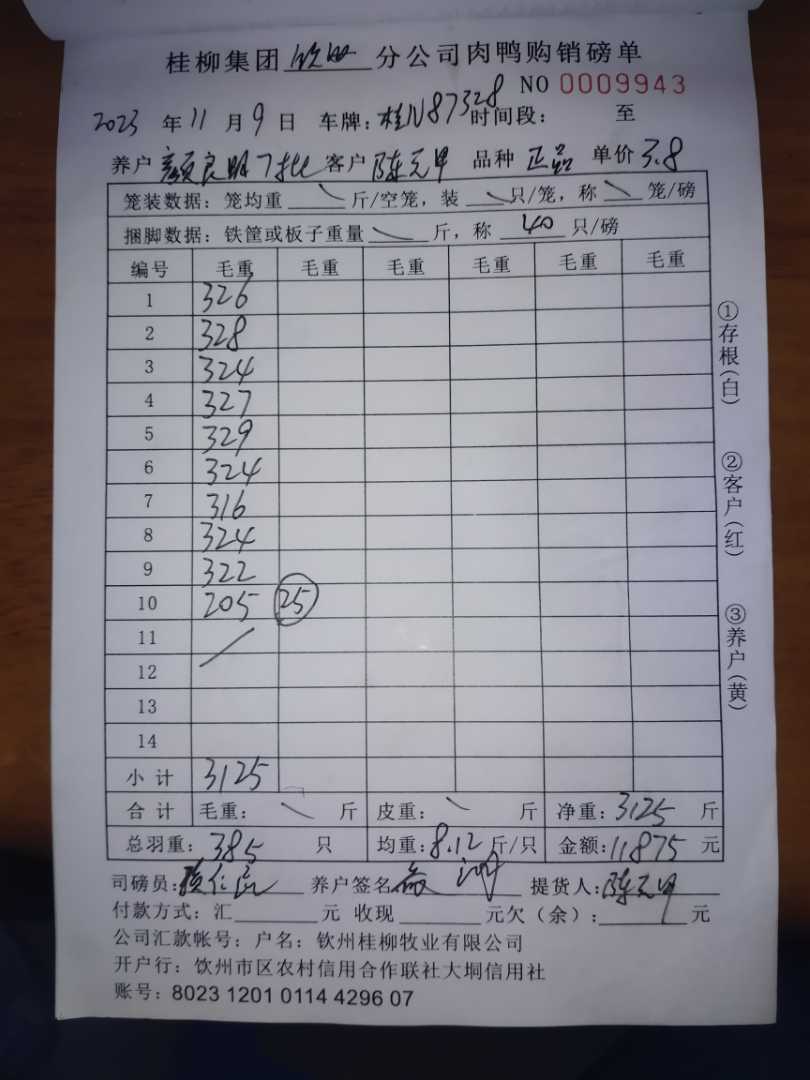 桂柳集团 钦州 分公司肉鸭购销磅单
NO 0009943
2023 年 11 月 9 日 车牌：桂N87328 时间段： 至
养户 颜良明7批 客户 陈元甲 品种 正品 单价 3.8
笼装数据：笼均重 斤/空笼，装 只/笼，称 笼/磅
捆脚数据：铁筐或板子重量 斤，称 40 只/磅
编号 毛重 毛重 毛重 毛重 毛重 毛重
1 326
2 328
3 324
4 327
5 329
6 324
7 316
8 324
9 322
10 205 25
11
12
13
14
小计 3125
合计 毛重： 斤 皮重： 斤 净重：3125 斤
总羽重：385 只 均重：8.12 斤/只 金额：11875 元
司磅员：颜仁良 养户签名 提货人：陈元甲
付款方式：汇 元 收现 元欠（余）： 元
公司汇款帐号：户名：钦州桂柳牧业有限公司
开户行：钦州市区农村信用合作联社大垌信用社
账号：8023 1201 0114 4296 07
①存根（白）
②客户（红）
③养户（黄）